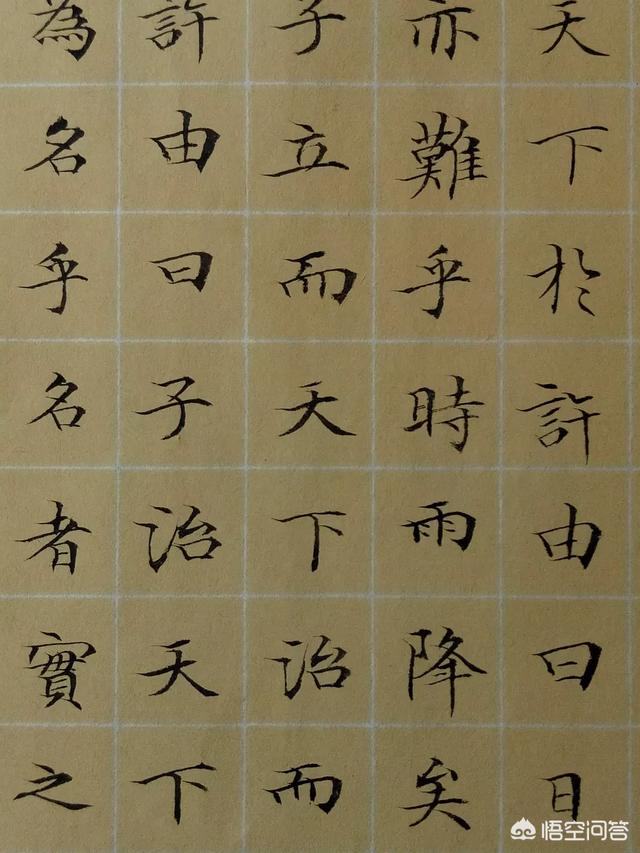 天下於許由曰日
亦難乎時雨降矣
子立而天下治而
許由曰子治天下
為名乎名者實之
悟空问答